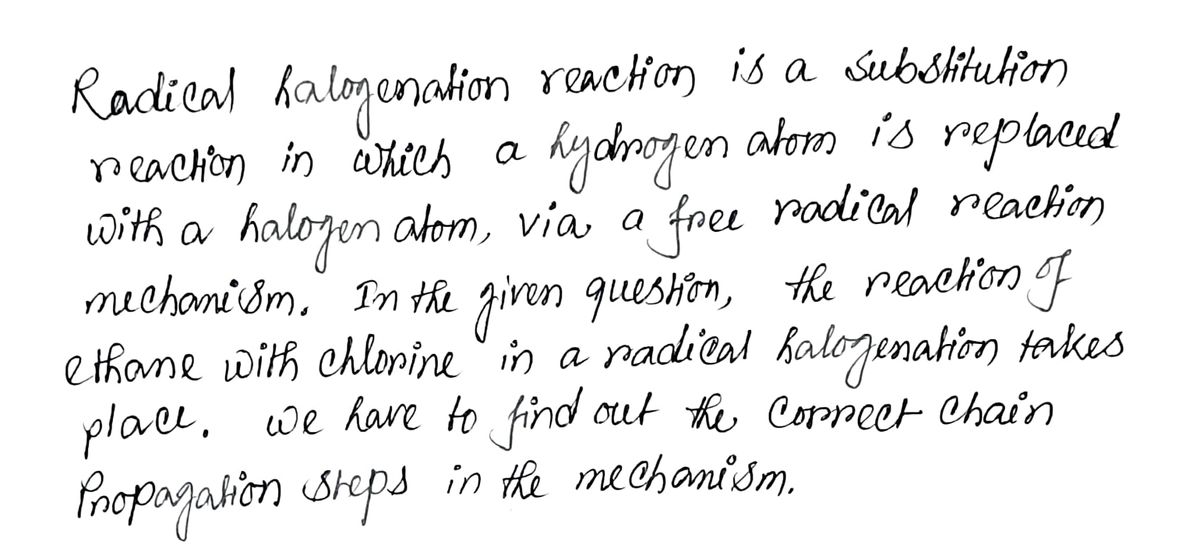 Radical halogenation reaction is a substitution
reaction in which a hydrogen atom is replaced
with a halogen atom, via a free radical reaction
mechanism. In the given question, the reaction of
ethane with chlorine in a radical halogenation takes
place. we have to find out the correct chain
Propagation steps in the mechanism.